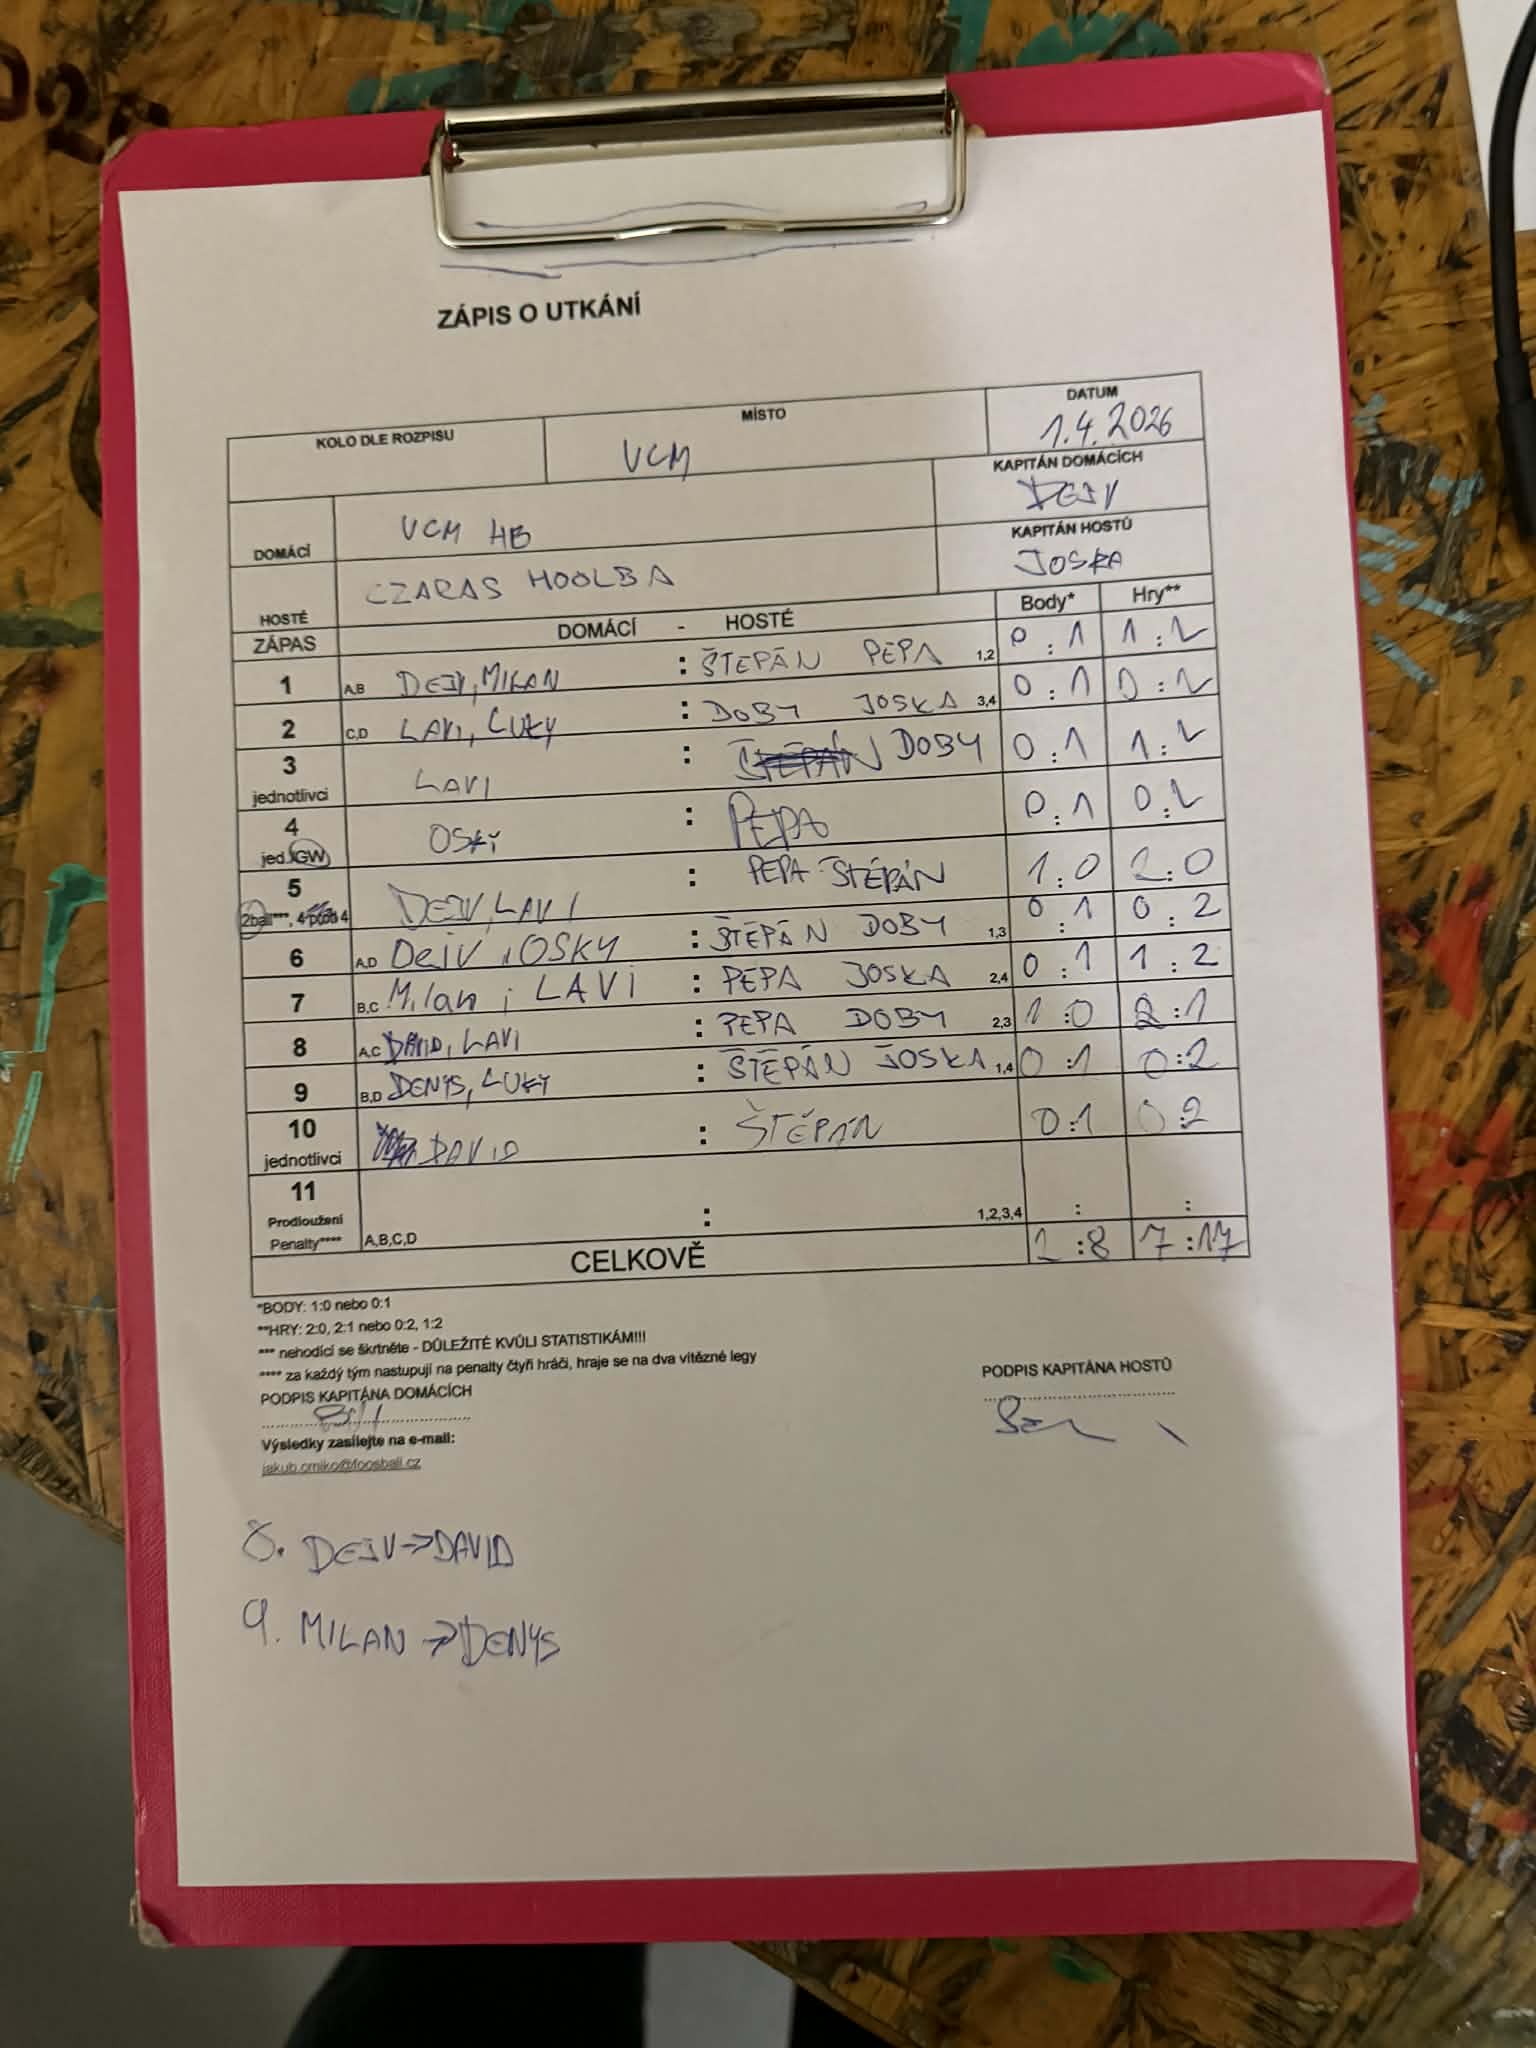 ZÁPIS O UTKÁNÍ
KOLO DLE ROZPISU MÍSTO DATUM
VCM 1.4.2026
DOMÁCÍ VCM HB KAPITÁN DOMÁCÍCH DEJV
HOSTÉ CZARAS HOOLBA KAPITÁN HOSTŮ JOSKA
ZÁPAS DOMÁCÍ - HOSTÉ Body* Hry**
1 A,B DEJV, MILAN : ŠTĚPÁN PEPA 1,2 0:1 1:2
2 C,D LAVI, LUKY : DOBY JOSKA 3,4 0:1 0:2
3 jednotlivci LAVI : ŠTĚPÁN DOBY 0:1 1:2
4 jed./GW OSKY : PEPA 0:1 0:2
5 2ball***, 4 proti 4 DEJV, LAVI : PEPA ŠTĚPÁN 1:0 2:0
6 A,D DEJV, OSKY : ŠTĚPÁN DOBY 1,3 0:1 0:2
7 B,C Milan, LAVI : PEPA JOSKA 2,4 0:1 1:2
8 A,C DAVID, LAVI : PEPA DOBY 2,3 1:0 2:1
9 B,D DENYS, LUKY : ŠTĚPÁN JOSKA 1,4 0:1 0:2
10 jednotlivci DAVID : ŠTĚPÁN 0:1 0:2
11 Prodloužení Penalty**** A,B,C,D : 1,2,3,4 : :
CELKOVĚ 2:8 7:17
*BODY: 1:0 nebo 0:1
**HRY: 2:0, 2:1 nebo 0:2, 1:2
*** nehodící se škrtněte - DŮLEŽITÉ KVŮLI STATISTIKÁM!!!
**** za každý tým nastupují na penalty čtyři hráči, hraje se na dva vítězné legy
PODPIS KAPITÁNA DOMÁCÍCH PODPIS KAPITÁNA HOSTŮ
Výsledky zasílejte na e-mail:
jakub.crniko@foosball.cz
8. DEJV→DAVID
9. MILAN→DENYS